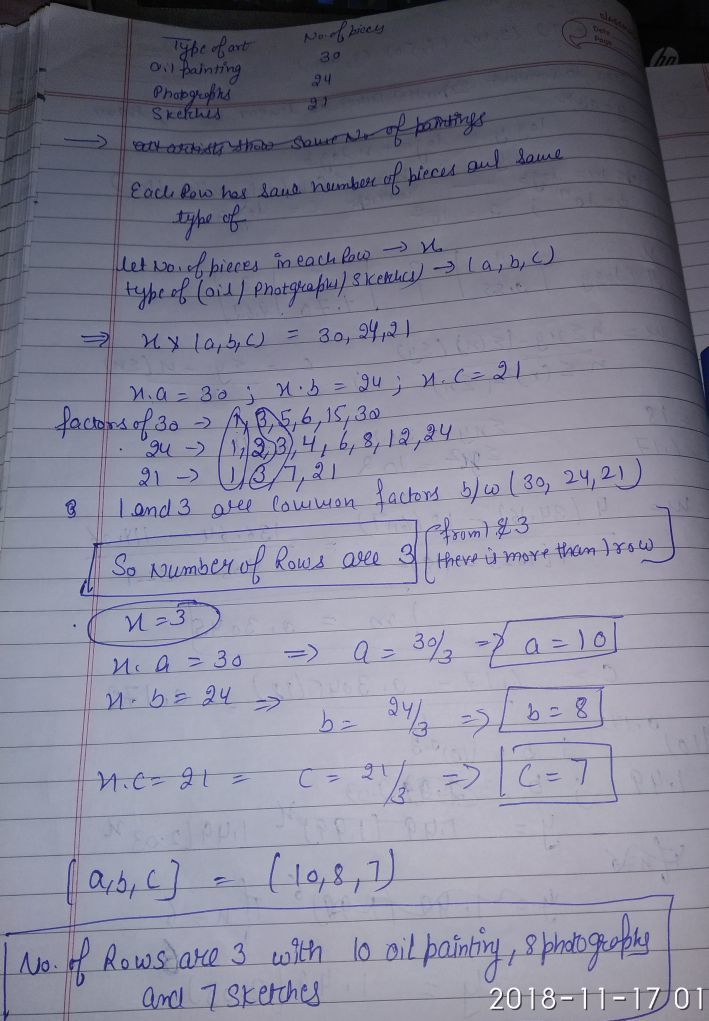 Date
Page
hp
Type of art No. of pieces
Oil painting 30
Photographs 24
Sketches 21
→ all artists show same No of paintings
Each Row has same number of pieces and same
type of
Let No. of pieces in each Row → x
type of (oil / Photgraphs / Sketches) → (a, b, c)
⇒ x × (a, b, c) = 30, 24, 21
x.a = 30 ; x.b = 24 ; x.c = 21
factors of 30 → 1, 3, 5, 6, 15, 30
24 → 1, 2, 3, 4, 6, 8, 12, 24
21 → 1, 3, 7, 21
1 and 3 are common factors b/w (30, 24, 21)
So Number of Rows are 3 [from 1 & 3
there is more than 1 row]
x = 3
x. a = 30 ⇒ a = 30/3 ⇒ a = 10
x. b = 24 ⇒ b = 24/3 ⇒ b = 8
x.c = 21 = c = 21/3 ⇒ c = 7
[a, b, c] = (10, 8, 7)
No. of Rows are 3 with 10 oil painting, 8 photographs
and 7 sketches
2018-11-17 01